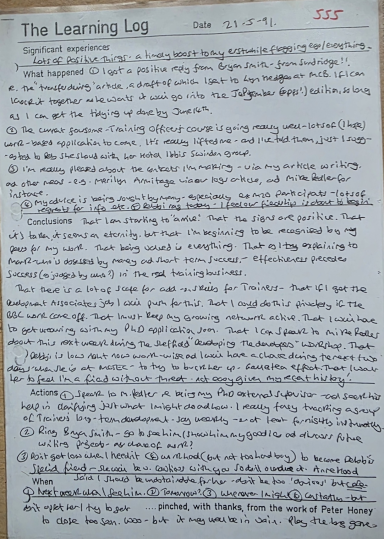 The Learning Log Date 21-5-91. 555
Significant experiences
Lots of Positive Things - a timely boost to my erstwhile flagging ego/everything -
What happened ① I got a positive reply from Bryan Smith - from Sundridge!!.
re. the 'transferring' article, a draft of which I sent to Lyn at MCB. If I can
knock it together as he wants it will go into the September (opps!) edition, so long
as I can get the tidying up done by June 14th.
② The current Training Officers course is going really well - lots of (I hope)
work-based application to come. It's really lifted me - and I've told them, just I sugg-
ested to Deb she should with her Hotel Ibbis Swindon group.
③ I'm really pleased about the contacts I'm making - via my article writing,
and other means - e.g. Marilyn Armitage via our logs article, and Mike Pedler for
instance.
④ My advice is being sought by many - especially ex MD Participants - lots of
requests for info etc. ⑤ my today - feel our friendship is about to begin
Conclusions That I am starting to 'arrive'. That the signs are positive. That
it's taken it seems an eternity. but that I'm beginning to be recognised by my
peers for my work. That being valued is everything. That as I try explaining to
success is by money and short term success - effectiveness precedes
success (as judged by whom?) in the real training business.
That there is a lot of scope for add-on skills for Trainers - that if I got the
Development Associates job I will push for this. That I could do this privately if the
BBC work came off. That I must keep my growing network alive. That I will have
to get working with my PhD application soon. That I can speak to Mike Pedler
about this next week during the Sheffield 'Developing the developers' workshop. That
Debbi is low just now work-wise and I will have a chance during the next two
days when she is at MGTEC - to try to buck her up. effect. That I want
her to feel I'm a friend without threat - not easy given my recent history.
Actions ① Speak to M. Pedler re being my PhD external supervisor - and seek his
help in clarifying just what I might do and how. I really fancy tracking a group
of Trainers long-term development - say weekly - or at least fortnightly
② Ring Bryan Smith - go to see him (show him my goodies and discuss future
writing projects - and network more?
③ Don't get low when I needn't ④ work hard (but not too hard boy) to become Debbi's
special friend - she will be v. cautious with you so don't overdue it. Ann Rehood
When said I should be underdistate further - don't be too 'obvious' but
① Next week when I see him. ② Tomorrow? ③ whenever I might ④ but
don't upset her / try to get .... pinched, with thanks, from the work of Peter Honey
to close too soon. Woo - but it may well be in vain. Play the long game -